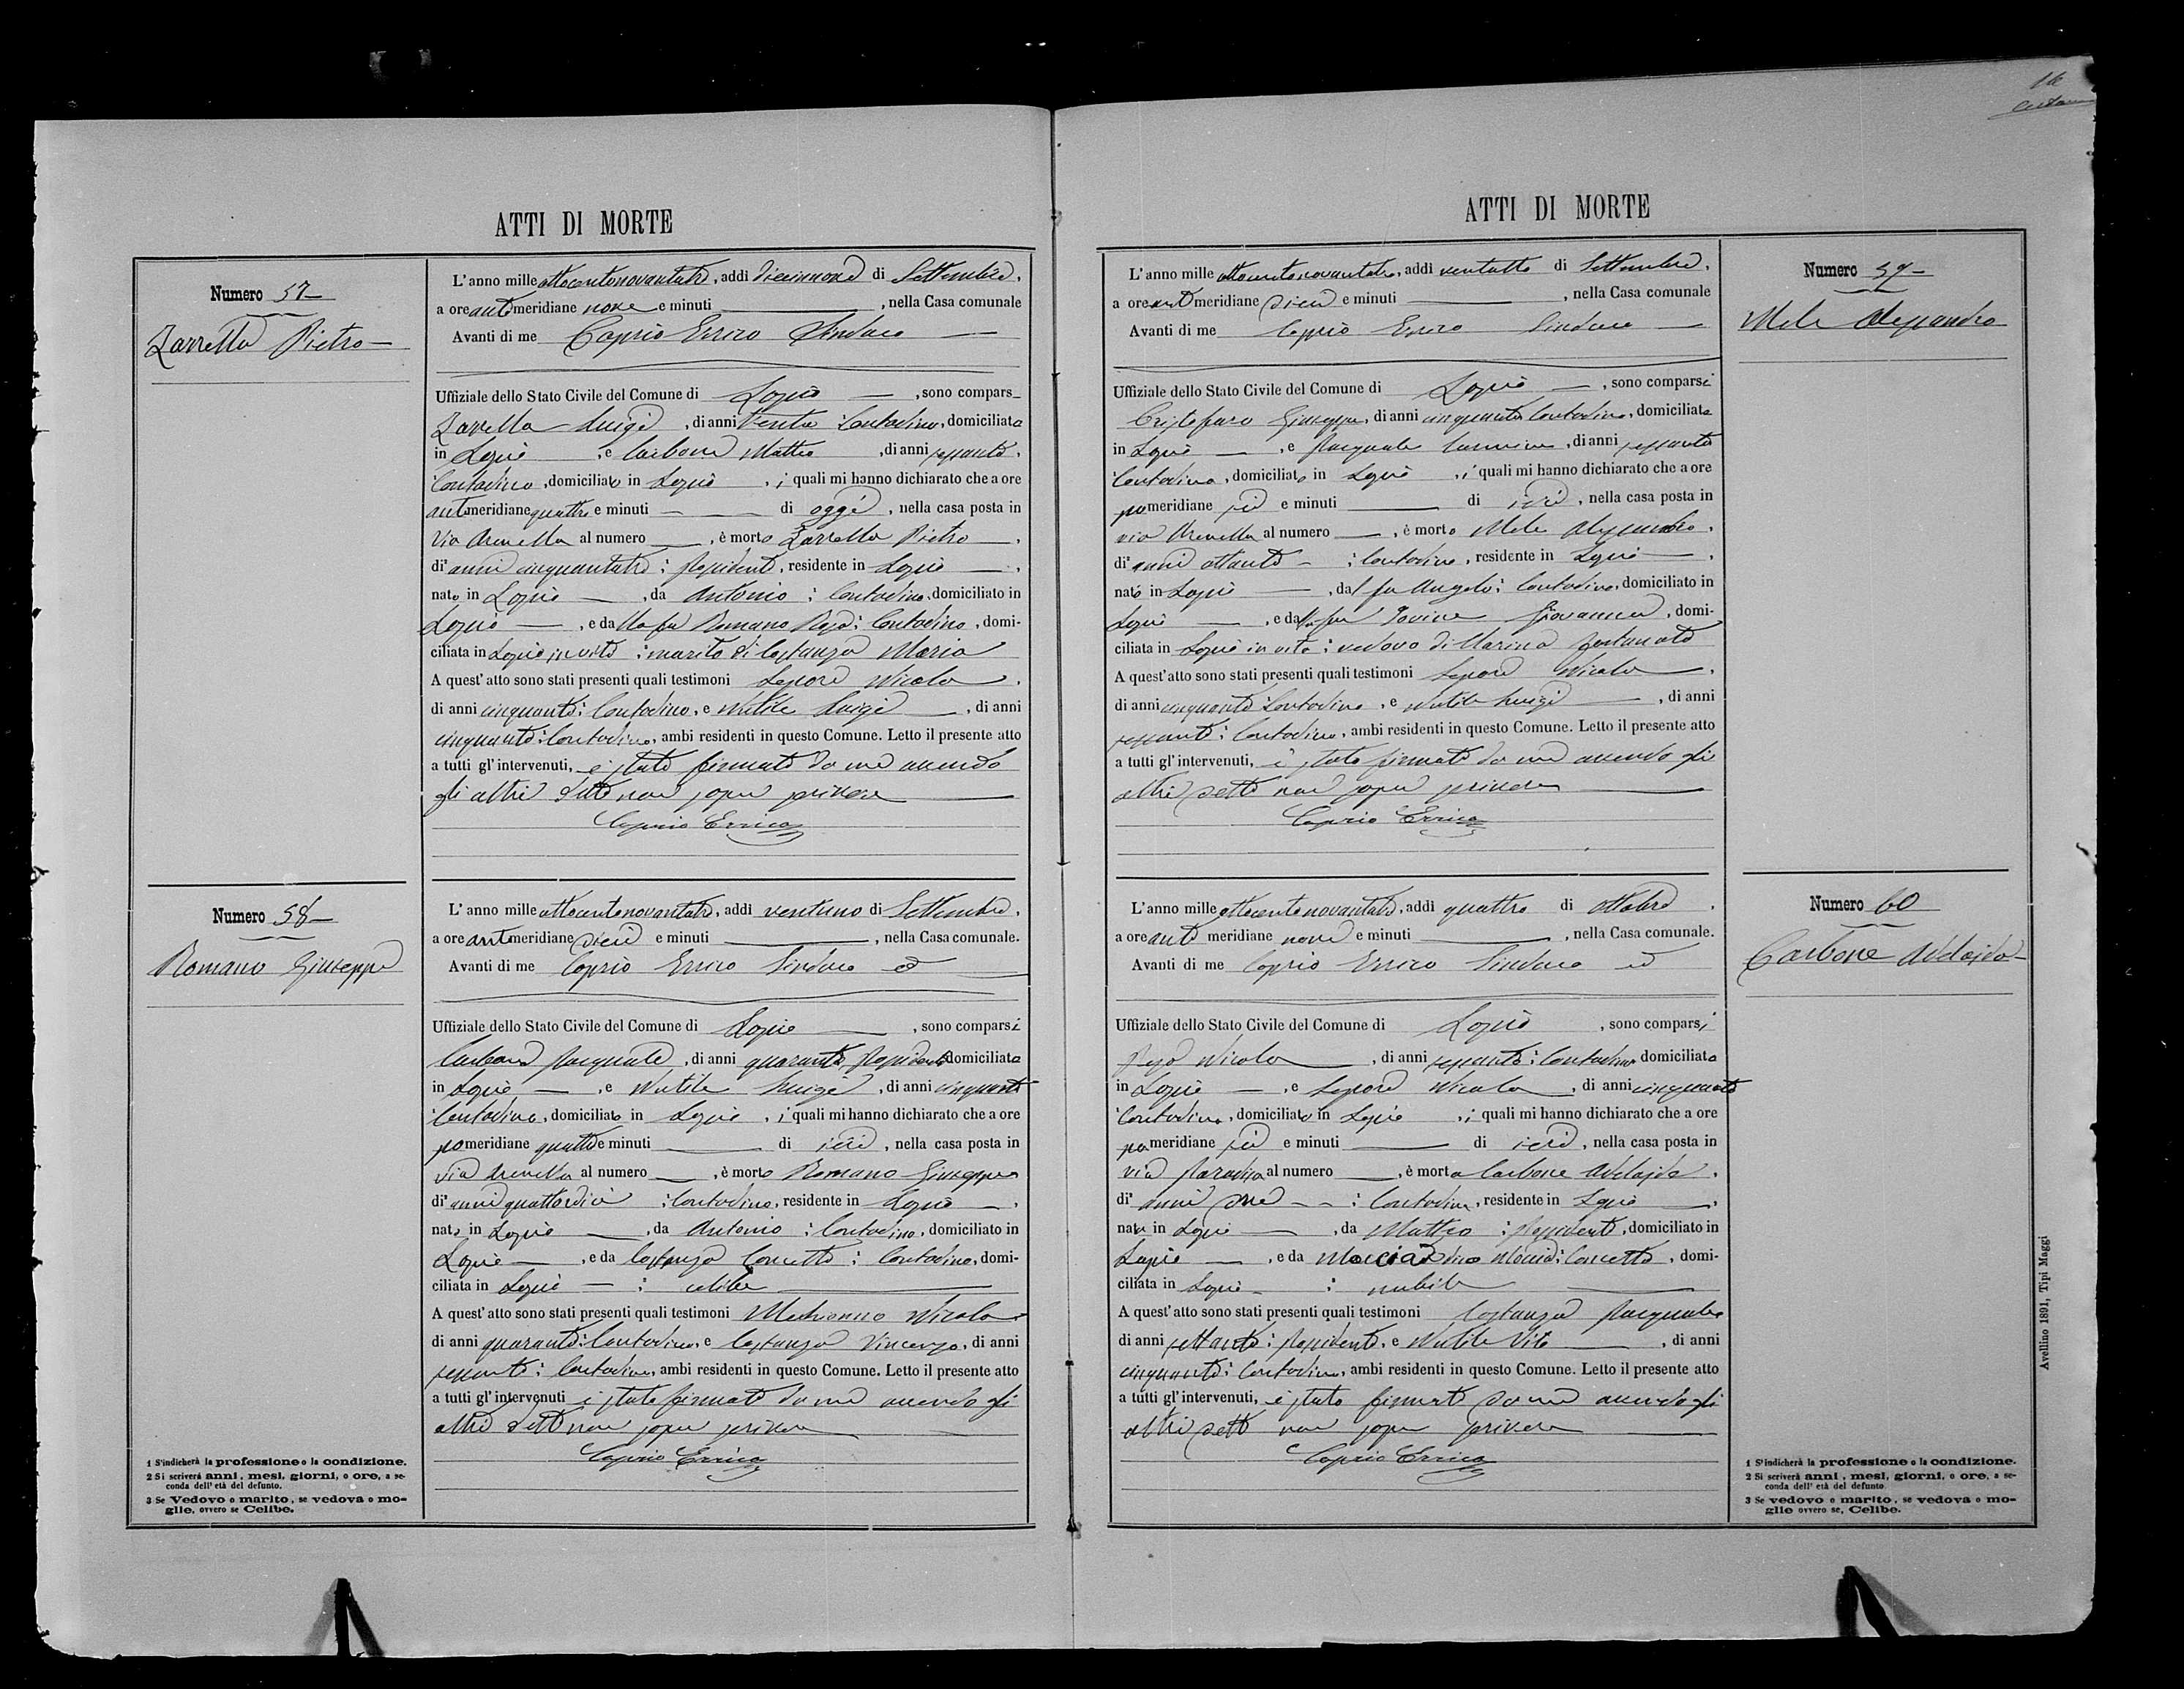 16
ATTI DI MORTE
Numero 57
Zarrella Pietro
L'anno mille ottocentonovantatre, addì diecinnove di Settembre,
a ore ante meridiane nove e minuti , nella Casa comunale
Avanti di me Caprio Errico Sindaco
Uffiziale dello Stato Civile del Comune di Lapio , sono compars
Zarrella Luigi , di anni trenta Contadino, domiciliato
in Lapio , e Carbone Matteo , di anni sessanta,
Contadino, domiciliato in Lapio , i quali mi hanno dichiarato che a ore
antimeridiane quattro e minuti di oggi , nella casa posta in
Via Arenella al numero , è morto Zarrella Pietro ,
di anni cinquantatre : Possidente, residente in Lapio ,
nato in Lapio , da Antonio : Contadino, domiciliato in
Lapio , e da lla fu Romano Rosa : Contadina, domi-
ciliata in Lapio in vita : marito di Costanza Maria
A quest'atto sono stati presenti quali testimoni Lepore Nicola ,
di anni cinquanta : Contadino, e Nutile Luigi , di anni
cinquanta : Contadino, ambi residenti in questo Comune. Letto il presente atto
a tutti gl'intervenuti, è stato firmato da me avendo
gli altri detto non saper scrivere
Caprio Errico
Numero 58
Romano Giuseppe
L'anno mille ottocentonovantatre, addì ventuno di Settembre,
a ore antimeridiane dieci e minuti , nella Casa comunale.
Avanti di me Caprio Errico Sindaco ed
Uffiziale dello Stato Civile del Comune di Lapio , sono comparsi
Carbone Pasquale , di anni quaranta, Possidente domiciliato
in Lapio , e Nutile Luigi , di anni cinquanta
Contadino, domiciliato in Lapio , i quali mi hanno dichiarato che a ore
pomeridiane quattro e minuti di ieri , nella casa posta in
via Arenella al numero , è morto Romano Giuseppe
di anni quattordici : Contadino, residente in Lapio ,
nato in Lapio , da Antonio : Contadino, domiciliato in
Lapio , e da Costanza Concetta : Contadina, domi-
ciliata in Lapio : celibe
A quest'atto sono stati presenti quali testimoni Nicola
di anni quaranta : Contadino, e Costanza Vincenzo, di anni
sessanta : Contadino, ambi residenti in questo Comune. Letto il presente atto
a tutti gl'intervenuti è stato firmato da me avendo gli
altri detto non saper scrivere
Caprio Errico
1 S'indicherà la professione o la condizione.
2 Si scriverà anni, mesi, giorni, o ore, a se-
conda dell'età del defunto.
3 Se Vedovo o marito, se vedova o mo-
glie, ovvero se Celibe.
ATTI DI MORTE
L'anno mille ottocentonovantatre, addì ventotto di Settembre,
a ore anti meridiane dieci e minuti , nella Casa comunale
Avanti di me Caprio Errico Sindaco
Uffiziale dello Stato Civile del Comune di Lapio , sono comparsi
Cristofaro Giuseppe, di anni cinquanta Contadino, domiciliato
in Lapio , e Pasquale , di anni sessanta
Contadino, domiciliato in Lapio , i quali mi hanno dichiarato che a ore
pomeridiane sei e minuti di ieri , nella casa posta in
via Arenella al numero , è morto Mele Alessandro,
di anni ottanta : Contadino, residente in Lapio ,
nato in Lapio , dal fu Angelo : Contadino, domiciliato in
Lapio , e dalla fu Iovine Giovanna , domi-
ciliata in Lapio in vita : vedovo di Marina Fortunata
A quest'atto sono stati presenti quali testimoni Lepore Nicola ,
di anni cinquanta Contadino , e Nutile Luigi , di anni
sessanta : Contadino, ambi residenti in questo Comune. Letto il presente atto
a tutti gl'intervenuti, è stato firmato da me avendo gli
altri detto non saper scrivere
Caprio Errico
Numero 59
Mele Alessandro
L'anno mille ottocentonovantatre, addì quattro di ottobre ,
a ore anti meridiane nove e minuti , nella Casa comunale.
Avanti di me Caprio Errico Sindaco ed
Uffiziale dello Stato Civile del Comune di Lapio , sono comparsi
Nicola , di anni sessanta : Contadino domiciliato
in Lapio , e Lepore Nicola , di anni cinquanta
Contadino, domiciliato in Lapio , i quali mi hanno dichiarato che a ore
pomeridiane sei e minuti di ieri , nella casa posta in
via Paradiso al numero , è morta Carbone Adelaide ,
di anni : Contadina, residente in Lapio ,
nata in Lapio , da Matteo : Possidente, domiciliato in
Lapio , e da Concetta , domi-
ciliata in Lapio : nubile
A quest'atto sono stati presenti quali testimoni Costanza Pasquale
di anni settanta : Possidente, e Nutile Vito , di anni
cinquanta : Contadino, ambi residenti in questo Comune. Letto il presente atto
a tutti gl'intervenuti, è stato firmato da me avendo gli
altri detto non saper scrivere
Caprio Errico
Numero 60
Carbone Adelaide
1 S'indicherà la professione o la condizione.
2 Si scriverà anni, mesi, giorni, o ore, a se-
conda dell'età del defunto
3 Se vedovo o marito, se vedova o mo-
glie ovvero se, Celibe.
Avellino 1891, Tipi Maggi